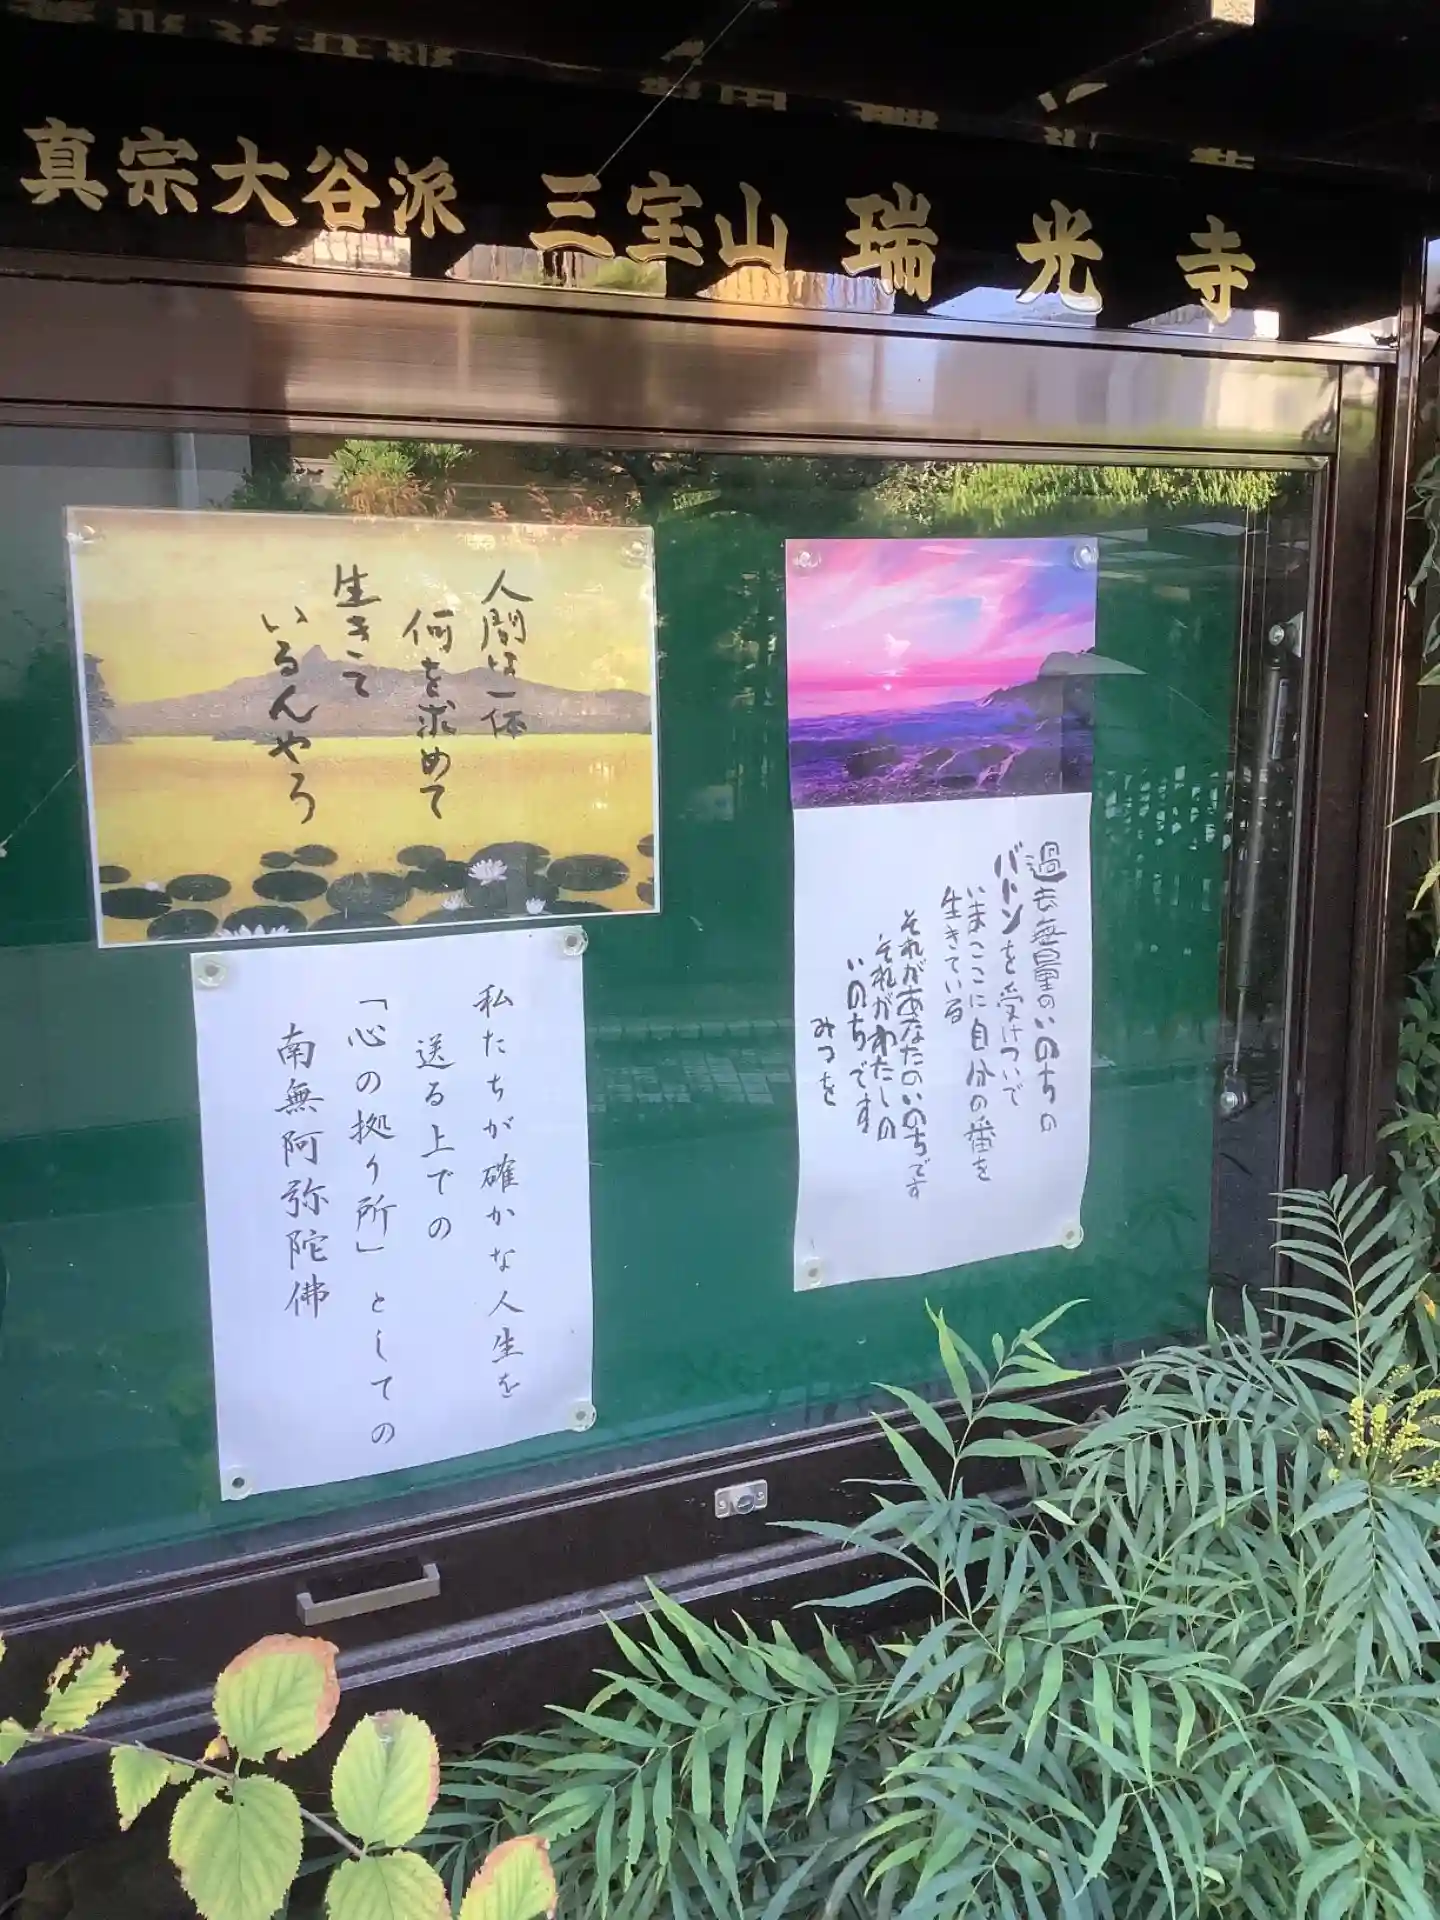 真宗大谷派 三宝山 瑞光寺
人間は一体
何を求めて
生きて
いるんやろ
私たちが確かな人生を
送る上での
「心の拠り所」としての
南無阿弥陀佛
過去無量のいのちの
バトンを受けついで
いまここに自分の番を
生きている
それがあなたのいのちです
それがわたしの
いのちです
みつを